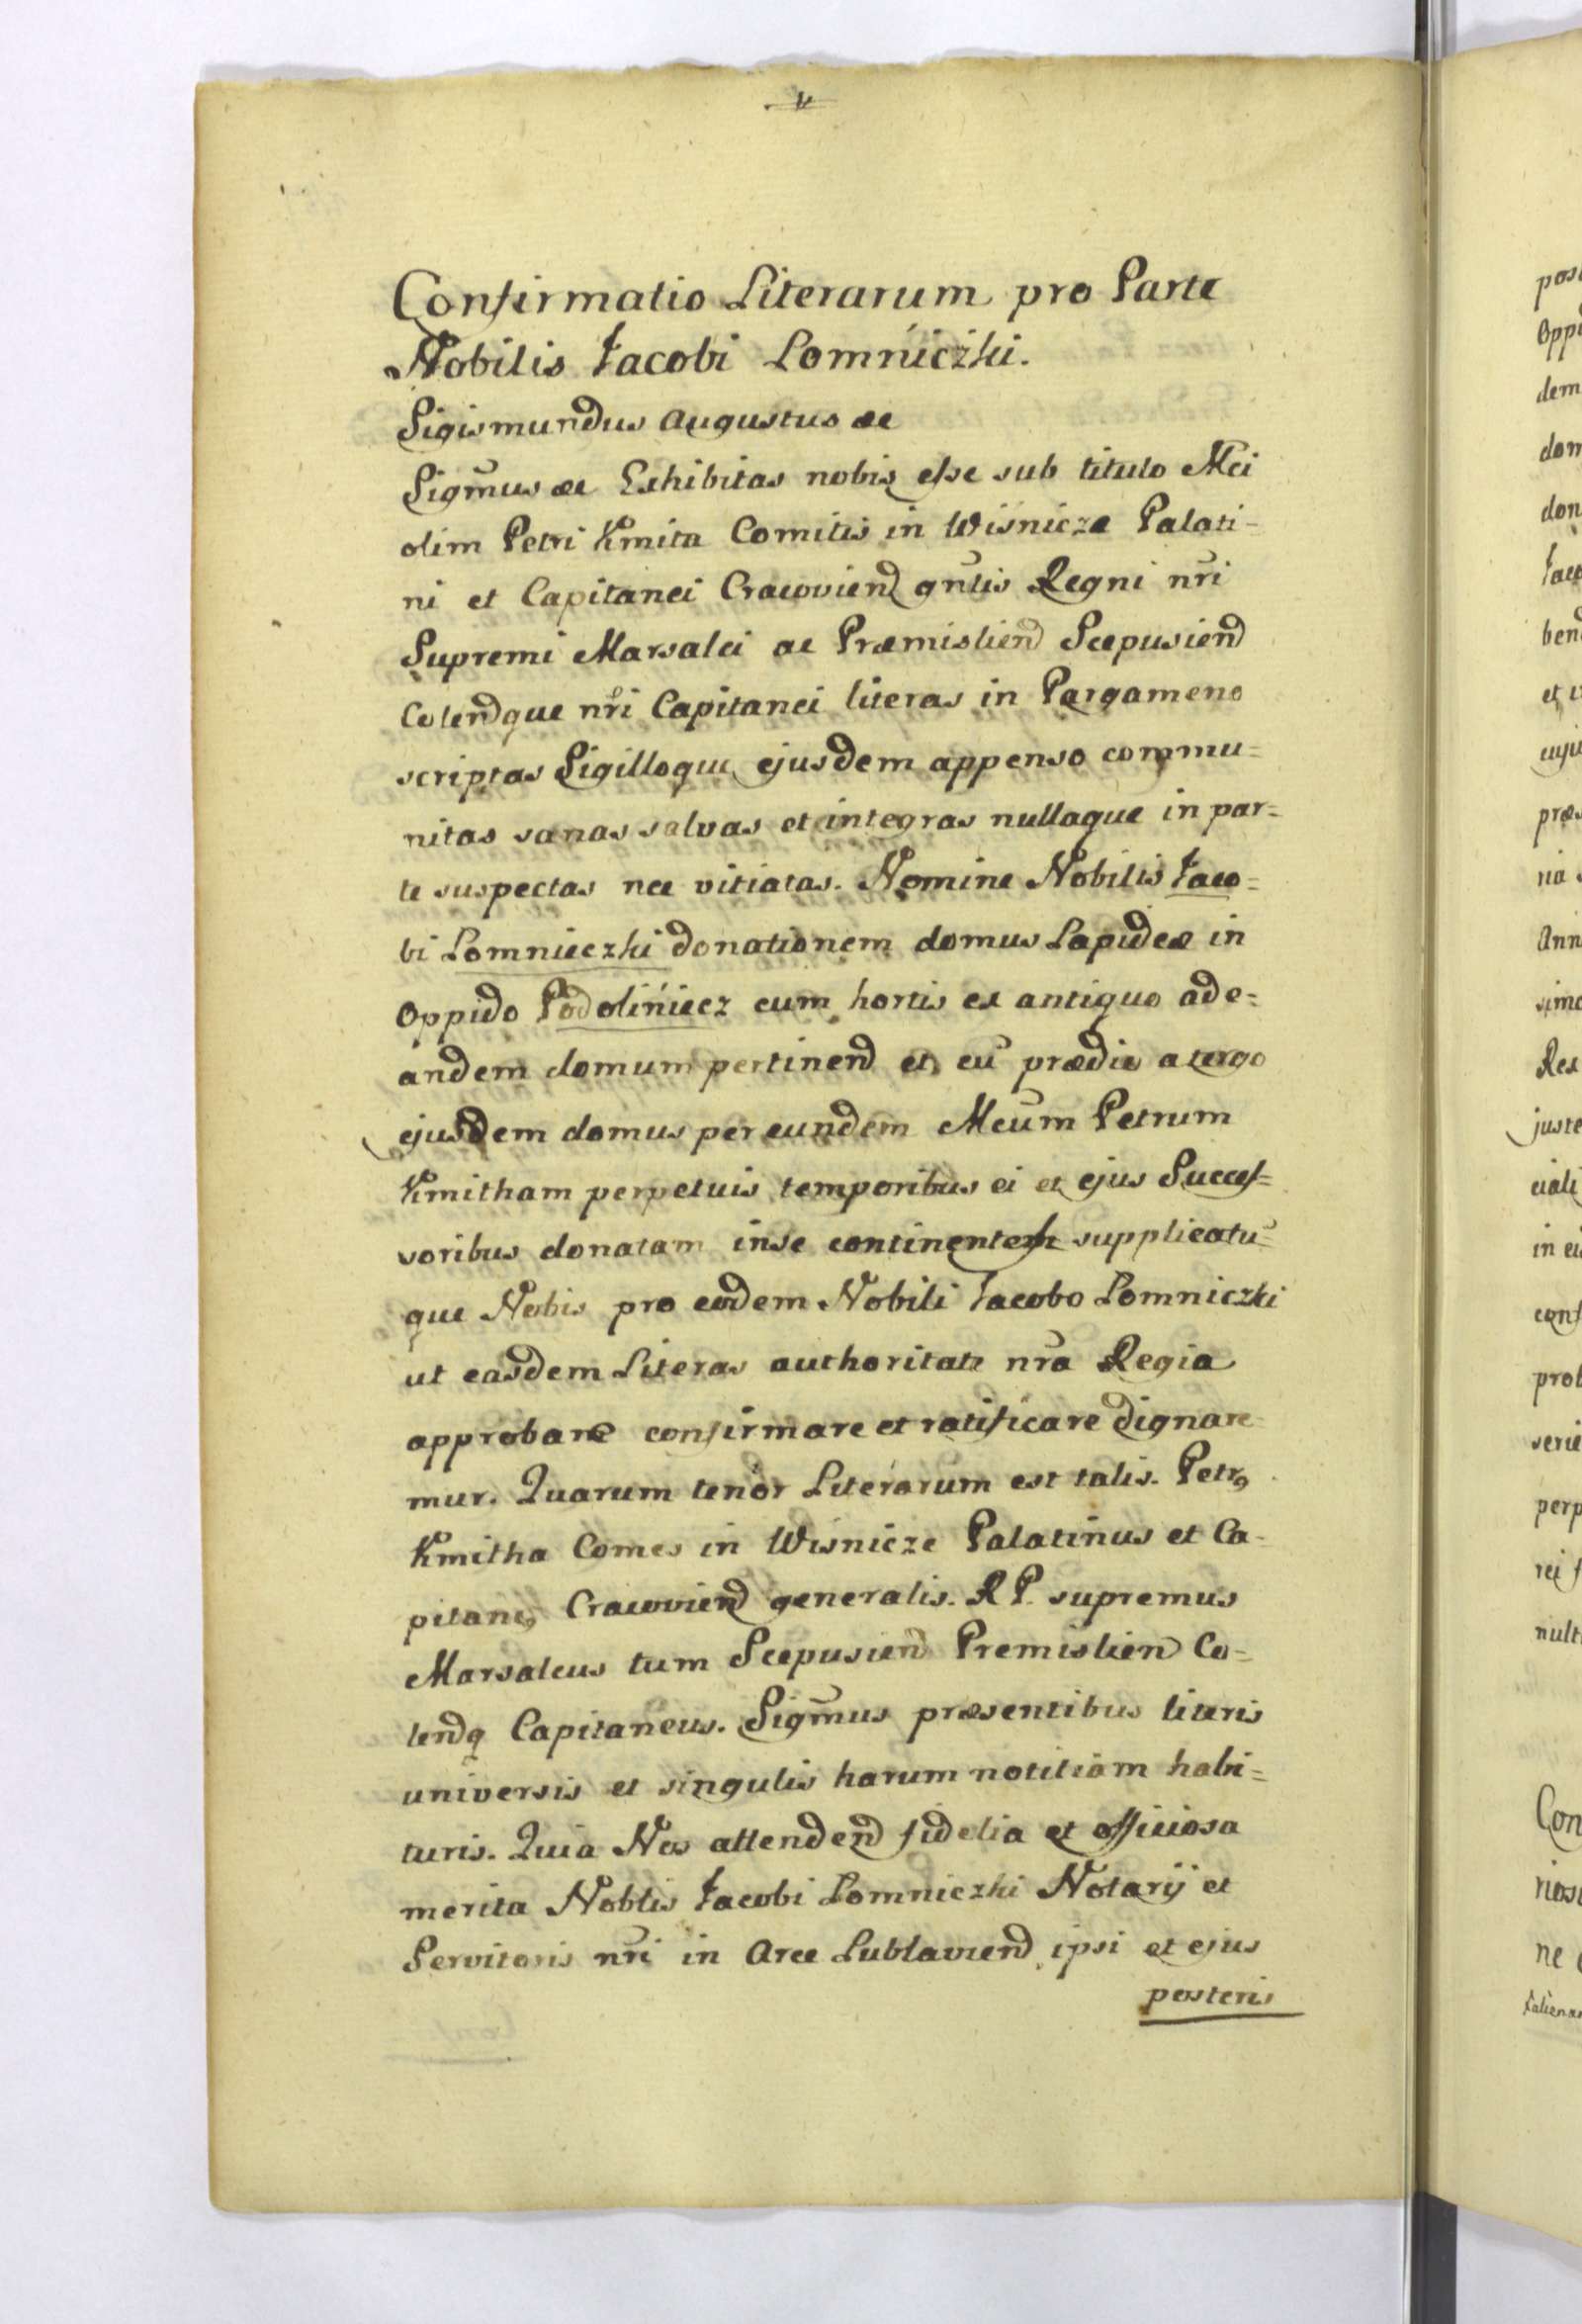 Confirmatio Literarum pro Parte
Nobilis Jacobi Lomniczki.
Sigismundus Augustus ae
Sigmus ae Exhibitas nobis esse sub titulo Mci
olim Petri Kmita Comitis in Wisnicze Palati-
ni et Capitanei Cracovien gnlis Regni nri
Supremi Marsalci ac Præmislien Scepusien
Colenque nri Capitanei literas in Pargameno
scriptas Sigilloque ejusdem appenso commu=
nitas sanas salvas et integras nullaque in par=
te suspectas nec vitiatas. Nomine Nobilis Jaco=
bi Lomnieczki donationem domus Lapideæ in
Oppido Podoliniecz cum hortis ex antiquo ade=
andem domum pertinen et cu prædio a tergo
ejusdem domus per eundem Mcum Petrum
Kmitham perpetuis temporibus ei et ejus Succes=
soribus donatam inse continentem supplicatu=
que Nobis pro eodem Nobili Jacobo Lomniczki
ut easdem Literas authoritate nra Regia
approbare confirmare et ratificare dignare
mur. Quarum tenor Literarum est talis. Petr9
Kmitha Comes in Wisnicze Palatinus et Ca-
pitane9 Cracovien generalis. R P. supremus
Marsalcus tum Scepusien Premislien Co=
lenq Capitaneus. Sigmus præsentibus literis
universis et singulis harum notitiam habi=
turis. Quia Nos attenden fidelia et officiosa
merita Noblis Jacobi Lomniczki Notarij et
Servitoris nri in Arce Lublavien ipsi et ejus
posteris